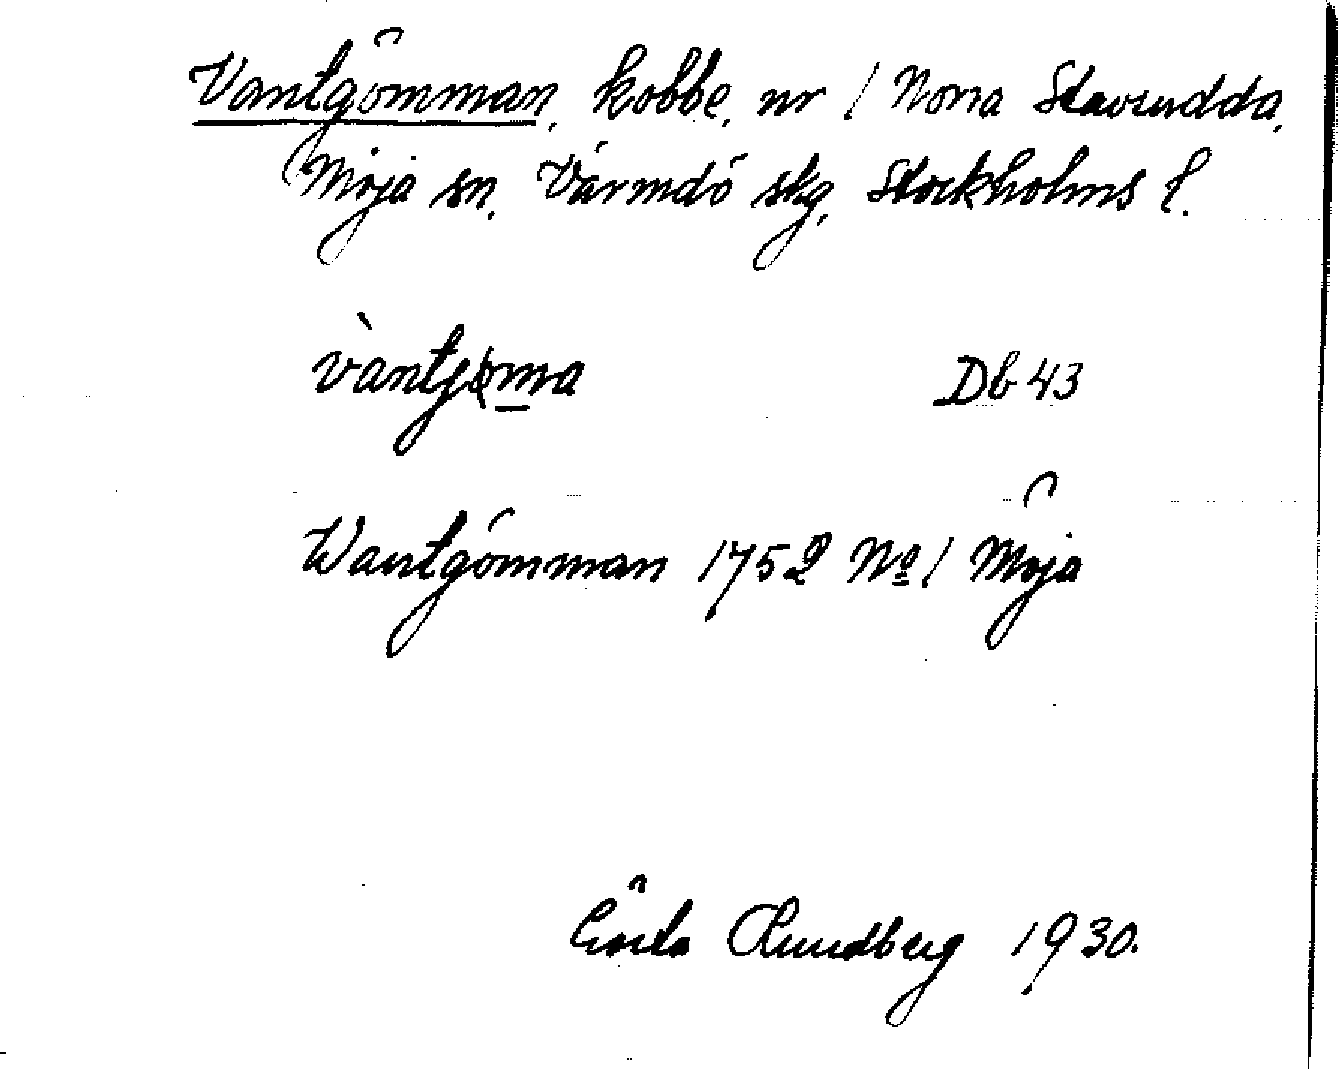 Vantgömman, kobbe, nr 1 Norra Stavsudda,
Möja sn, Värmdö skg, Stockholms l.
vàntjøma Db 43
Wantgömman 1752 No 1 Möja
Gösta Lundberg 1930.